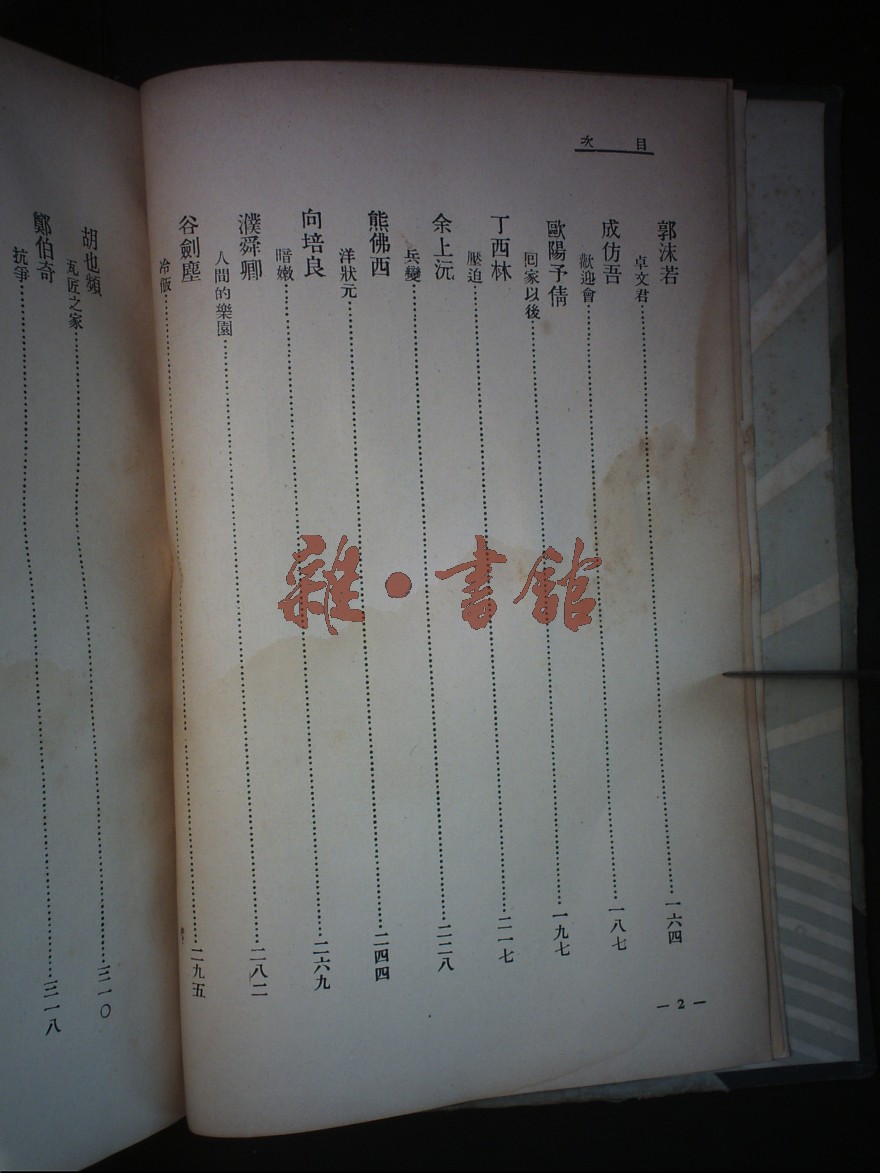 目次
郭沫若
卓文君……一六四
成仿吾
歡迎會……一八七
歐陽予倩
回家以後……一九七
丁西林
壓迫……二一七
余上沅
兵變……二二八
熊佛西
洋狀元……二四四
向培良
暗嫩……二六九
濮舜卿
人間的樂園……二八二
谷劍塵
冷飯……二九五
— 2 —
胡也頻
瓦匠之家……三一〇
鄭伯奇
抗爭……三一八
雜·書館